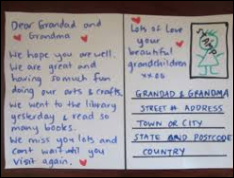 Dear Grandad and
Grandma
We hope you are well.
We are great and
having so much fun
doing our arts & crafts
We went to the library
yesterday & read so
many books.
We miss you lots and
cant wait until you
visit again.
Lots of Love
your
beautiful
grandchildren
xxoo
STAMP
GRANDAD & GRANDMA
STREET # ADDRESS
TOWN OR CITY
STATE AND POSTCODE
COUNTRY